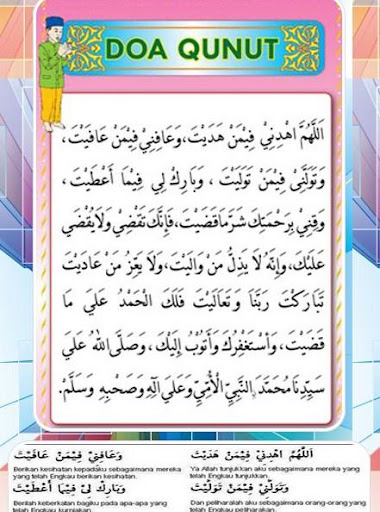 DOA QUNUT
اَللّٰهُمَّ اهْدِنِيْ فِيْمَنْ هَدَيْتَ، وَعَافِنِيْ فِيْمَنْ عَافَيْتَ،
وَتَوَلَّنِيْ فِيْمَنْ تَوَلَّيْتَ ، وَبَارِكْ لِي فِيْمَا أَعْطَيْتَ،
وَقِنِيْ بِرَحْمَتِكَ شَرَّ مَا قَضَيْتَ، فَإِنَّكَ تَقْضِيْ وَلَا يُقْضَي
عَلَيْكَ، وَإِنَّهُ لَا يَذِلُّ مَنْ وَالَيْتَ، وَلَا يَعِزُّ مَنْ عَادَيْتَ
تَبَارَكْتَ رَبَّنَا وَتَعَالَيْتَ فَلَكَ الْحَمْدُ عَلَي مَا
قَضَيْتَ، وَأَسْتَغْفِرُكَ وَأَتُوْبُ إِلَيْكَ، وَصَلَّى اللهُ عَلَي
سَيِّدِنَا مُحَمَّدٍ النَّبِيِّ الْأُمِّيِّ وَعَلَي آلِهِ وَصَحْبِهِ وَسَلَّمَ.
اَللّٰهُمَّ اهْدِنِيْ فِيْمَنْ هَدَيْتَ
Ya Allah tunjukkan aku sebagaimana mereka yang
telah Engkau tunjukkan.
وَتَوَلَّنِيْ فِيْمَنْ تَوَلَّيْتَ
Dan peliharalah aku sebagaimana orang-orang yang
telah Engkau peliharakan.
وَعَافِنِيْ فِيْمَنْ عَافَيْتَ
Berikan kesihatan kepadaku sebagaimana mereka
yang telah Engkau berikan kesihatan.
وَبَارِكْ لِيْ فِيْمَا أَعْطَيْتَ
Berilah keberkatan bagiku pada apa-apa yang
telah Engkau kurniakan.